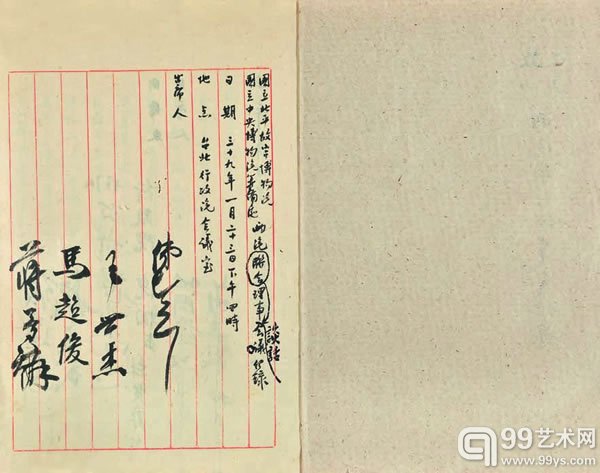 國立北平故宮博物院
國立中央博物院籌備處
兩院聯合理事會議紀錄
談話
日期 三十九年一月二十三日下午四時
地点 台北行政院會議室
出席人
王世杰
馬超俊
蔣夢麟
99艺术网
www.99ys.com